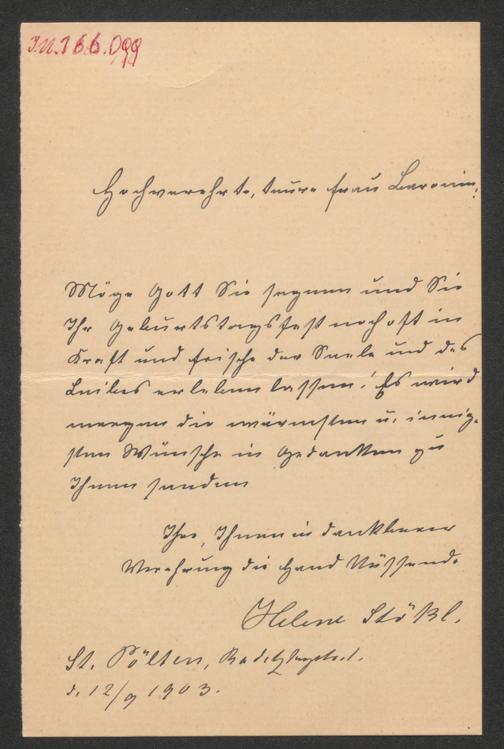 J.N.166.099
Hochverehrte, teure Frau Baronin,
Möge Gott Sie segnen und Sie
Ihr Geburtstagsfest noch oft in
Kraft und Frische der Seele und des
Leibes erleben lassen! Es wird
morgen die wärmsten u. innig-
sten Wünsche in Gedanken zu
Ihnen senden
Ihre, Ihnen in dankbarer
Verehrung die Hand küssende
Helene Stökl.
St. Pölten,
d. 12/9 1903.